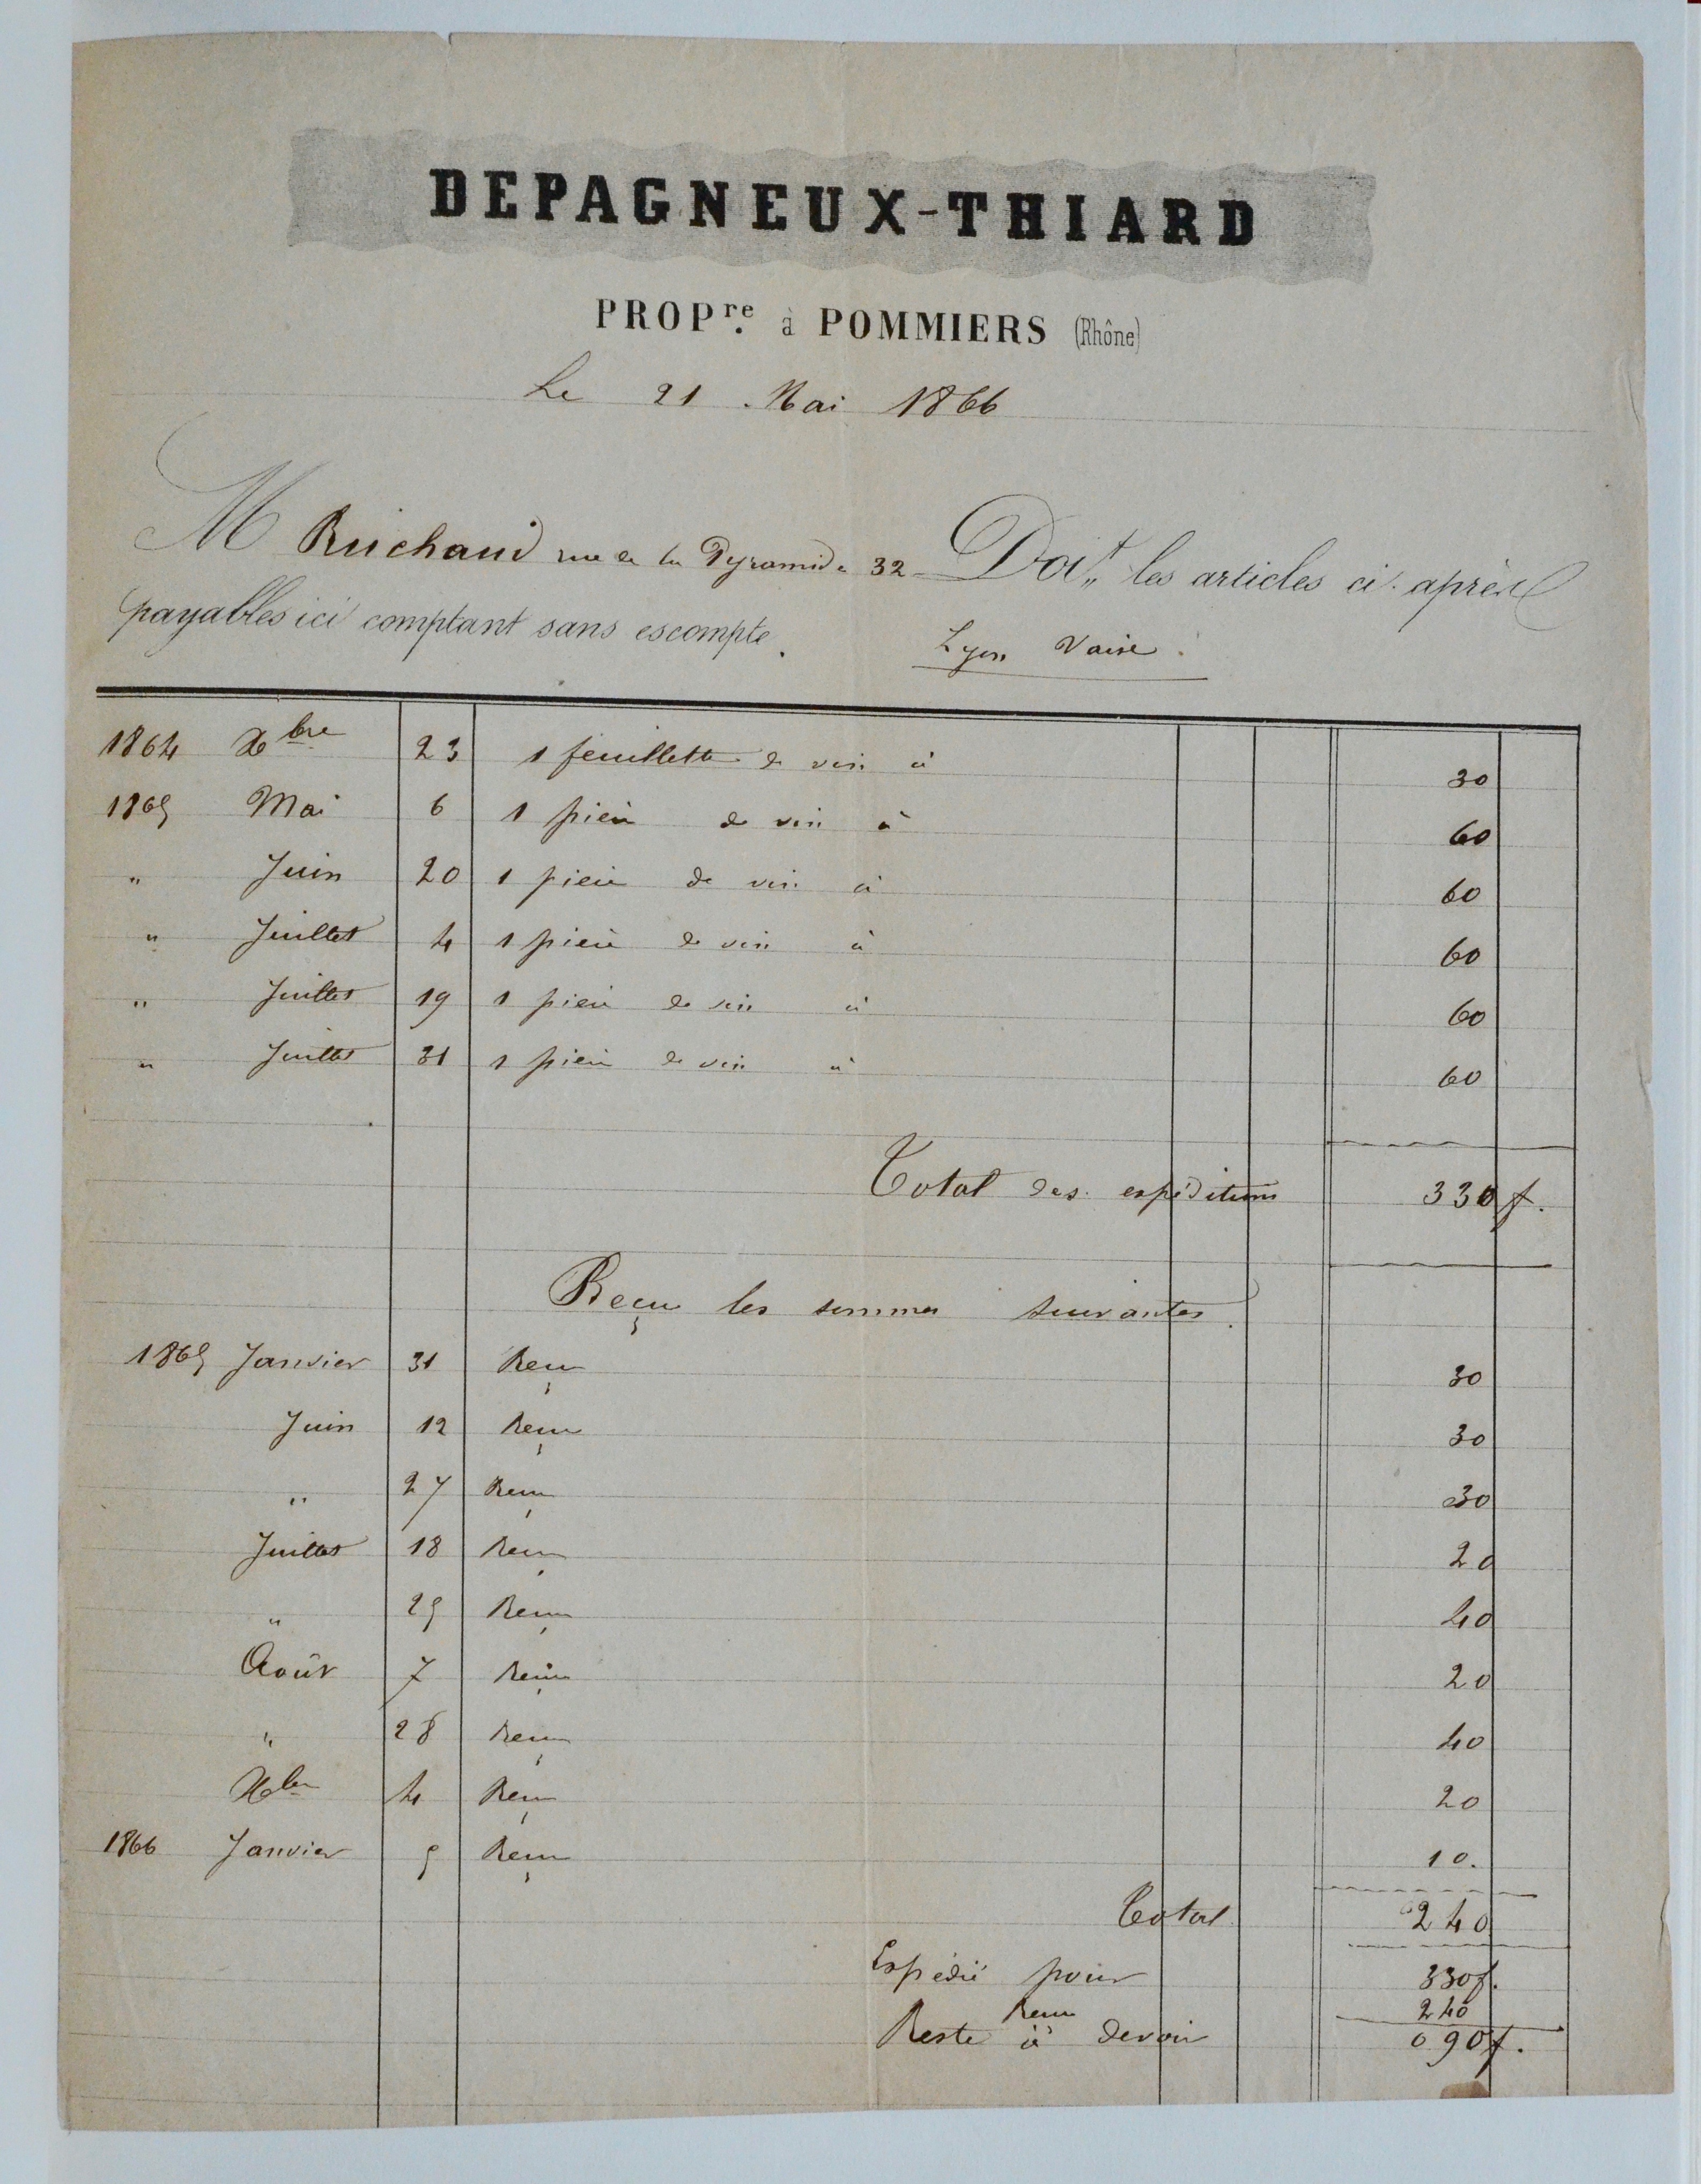 DEPAGNEUX-THIARD
PROPre. à POMMIERS (Rhône)
Le 21 Mai 1866
M Ruichaud rue de la Pyramide 32 Doit les articles ci-après
payables ici comptant sans escompte.
Lyon Vaise
1864 Xbre 23 1 feuillette de vin à 30
1865 Mai 6 1 pièce de vin à 60
" Juin 20 1 pièce de vin à 60
" Juillet 4 1 pièce de vin à 60
" Juillet 19 1 pièce de vin à 60
" Juillet 31 1 pièce de vin à 60
Total des expéditions 330 f.
Reçu les sommes suivantes.
1865 Janvier 31 Reçu 30
Juin 12 Reçu 30
" 27 Reçu 30
Juillet 18 Reçu 20
" 25 Reçu 40
Août 7 Reçu 20
" 28 Reçu 40
Xbre 4 Reçu 20
1866 Janvier 5 Reçu 10.
Total 240
Expédié pour 330 f.
Reçu 240
Reste à devoir 090 f.